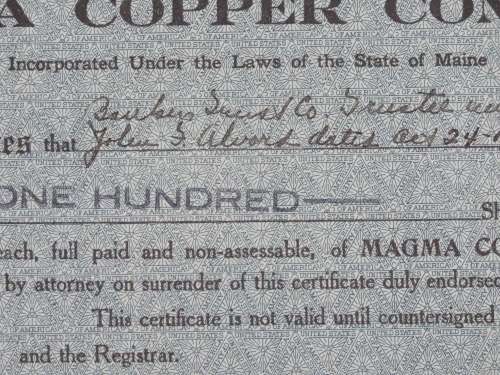 A COPPER CO
Incorporated Under the Laws of the State of Maine
Bankers Trust Co. Trustee
es that John T. Alvord dated Oct 24-
ONE HUNDRED
Sh
each, full paid and non-assessable, of MAGMA CO
by attorney on surrender of this certificate duly endorsed
This certificate is not valid until countersigned
and the Registrar.